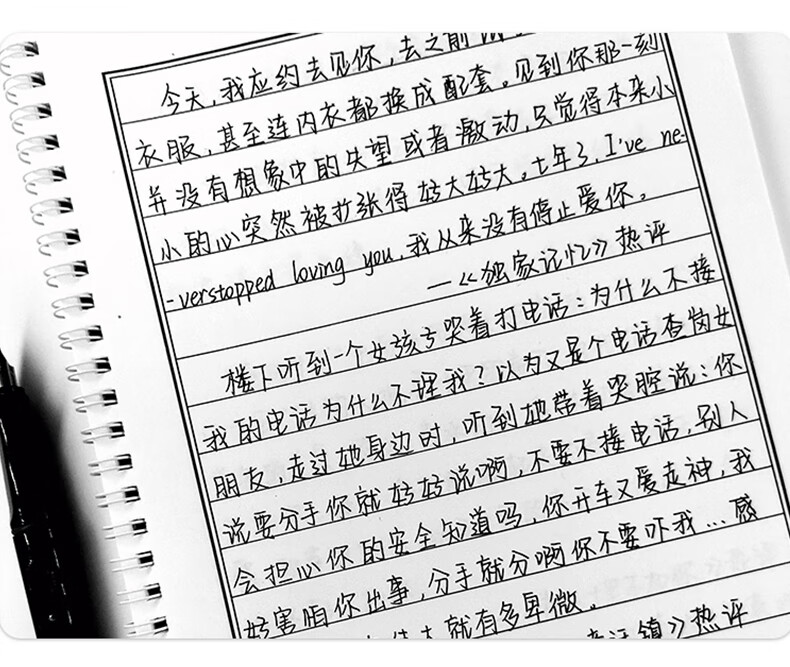 今天,我应约去见你,去之前
衣服,甚至连内衣都换成配套。见到你那一刻
并没有想象中的失望或者激动,只觉得本来小
小的心突然被扩张得好大好大。七年了,I've ne-
-verstopped loving you,我从来没有停止爱你。
—《独家记忆》热评
楼下听到一个女孩子哭着打电话:为什么不接
我的电话为什么不理我?以为又是个电话查岗女
朋友,走过她身边时,听到她带着哭腔说:你
说要分手你就好好说啊,不要不接电话,别人
会担心你的安全知道吗,你开车又爱走神,我
好害怕你出事,分手就分啊你不要吓我...感
就有多卑微。
镇》热评